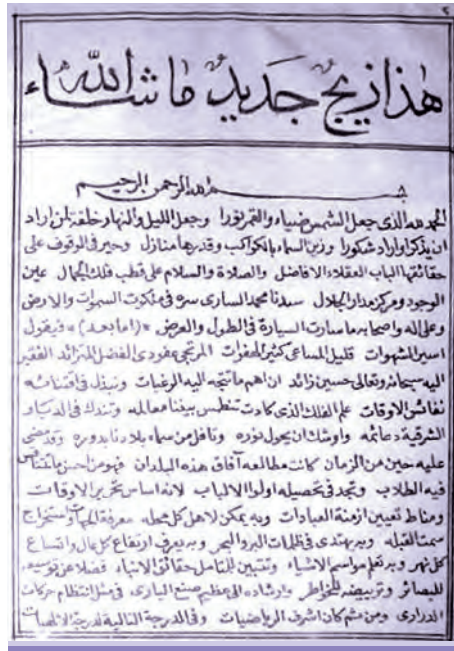 ٢
هذا زيج جديد ما شاء الله
بسم الله الرحمن الرحيم
الحمد لله الذى جعل الشمس ضياء والقمر نورا وجعل الليل والنهار خلفة لمن اراد
ان يذكر او اراد شكورا وزين السماء بالكواكب وقدرها منازل وحير فى الوقوف على
حقائقها الباب العقلاء الافاضل والصلاة والسلام على قطب فلك الجمال عين
الوجود ومركز مدار الجلال سيدنا محمد السارى سره فى ملكوت السموات والارض
وعلى اله واصحابه ما سارت السيارة فى الطول والعرض (اما بعد) فيقول
اسير الشهوات قليل المساعى كثير الهفوات المرتجى عفو ذى الفضل المتزائد الفقير
اليه سبحانه وتعالى حسين زائد ان اهم ما تتجه اليه الرغبات وتبذل فى اقتنائه
نفائس الاوقات علم الفلك الذى كادت تنطمس بيننا معالمه وتندك فى الديار
الشرقية دعائمه واوشك ان يحول نوره وتافل من سماء بلادنا بدوره وقد مضى
عليه حين من الزمان كانت مطالعه آفاق هذه البلدان فهو من احسن ما يتنافس
فيه الطلاب وتجد فى تحصيله اولوا الالباب لانه اساس تحرير الاوقات
ومناط تعيين ازمنة العبادات وبه يمكن لاهل كل محله معرفة الجهات واستخراج
سمت القبله وبه يهتدى فى ظلمات البر والبحر وبه يعرف ارتفاع كل عال واتساع
كل نهر وبه تعلم مواسم الاشياء وتتبين للمتامل حقائق الانباء فضلا عن توسيعه
للبصائر وترييضه للخواطر وارشاده الى عظيم صنع البارى فى مثل انتظام حركات
الدرارى ومن ثم كان اشرف الرياضيات وفى الدرجة التالية لدرجة الالهيات